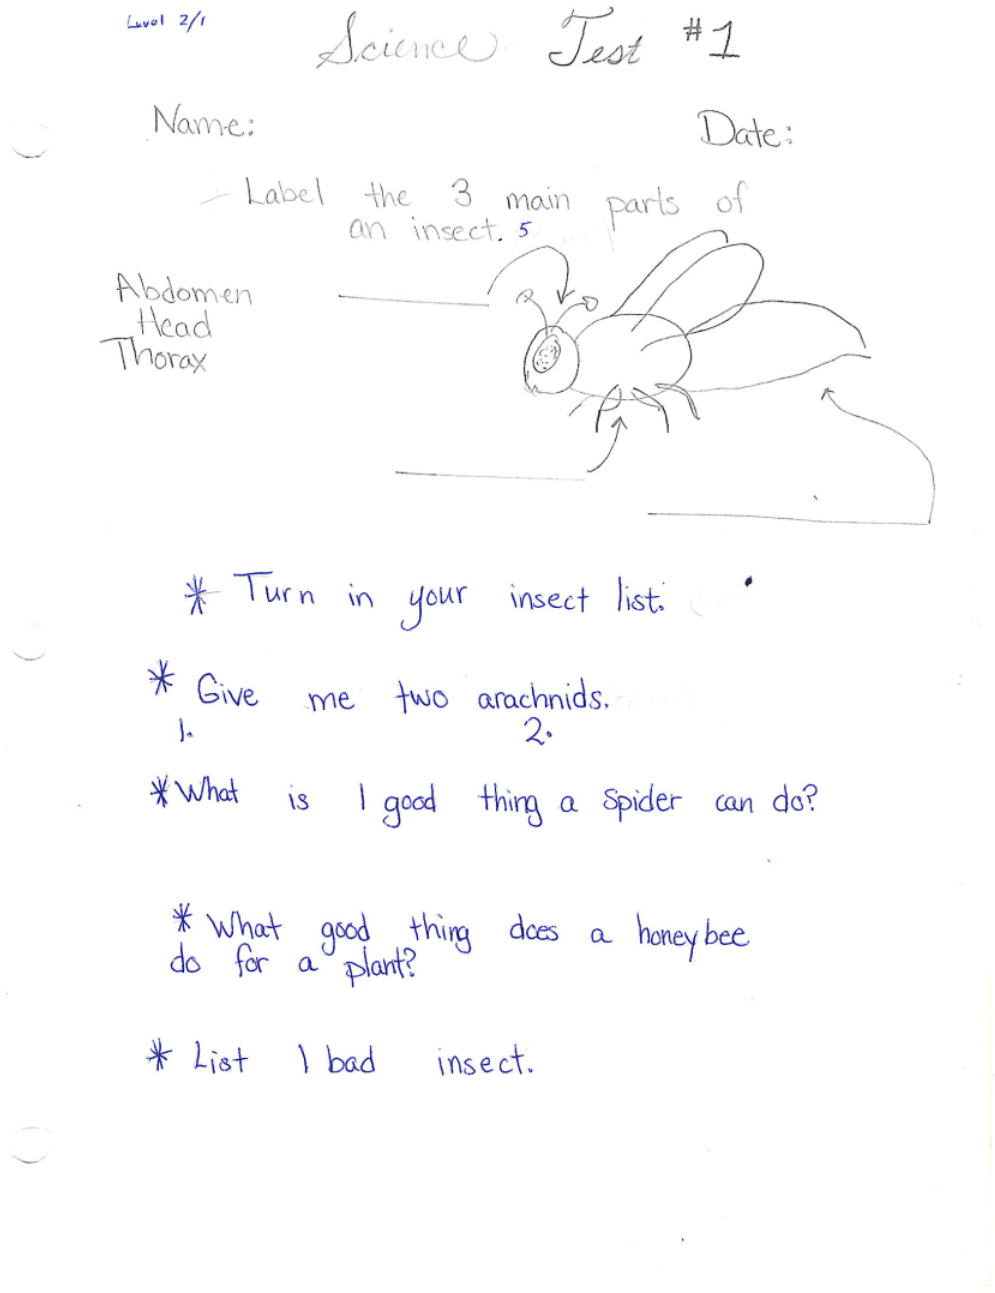 Level 2/1
Science Test #1
Name: Date:
- Label the 3 main parts of
an insect. 5
Abdomen
Head
Thorax
* Turn in your insect list.
* Give me two arachnids.
1. 2.
* What is 1 good thing a spider can do?
* What good thing does a honey bee
do for a plant?
* List 1 bad insect.